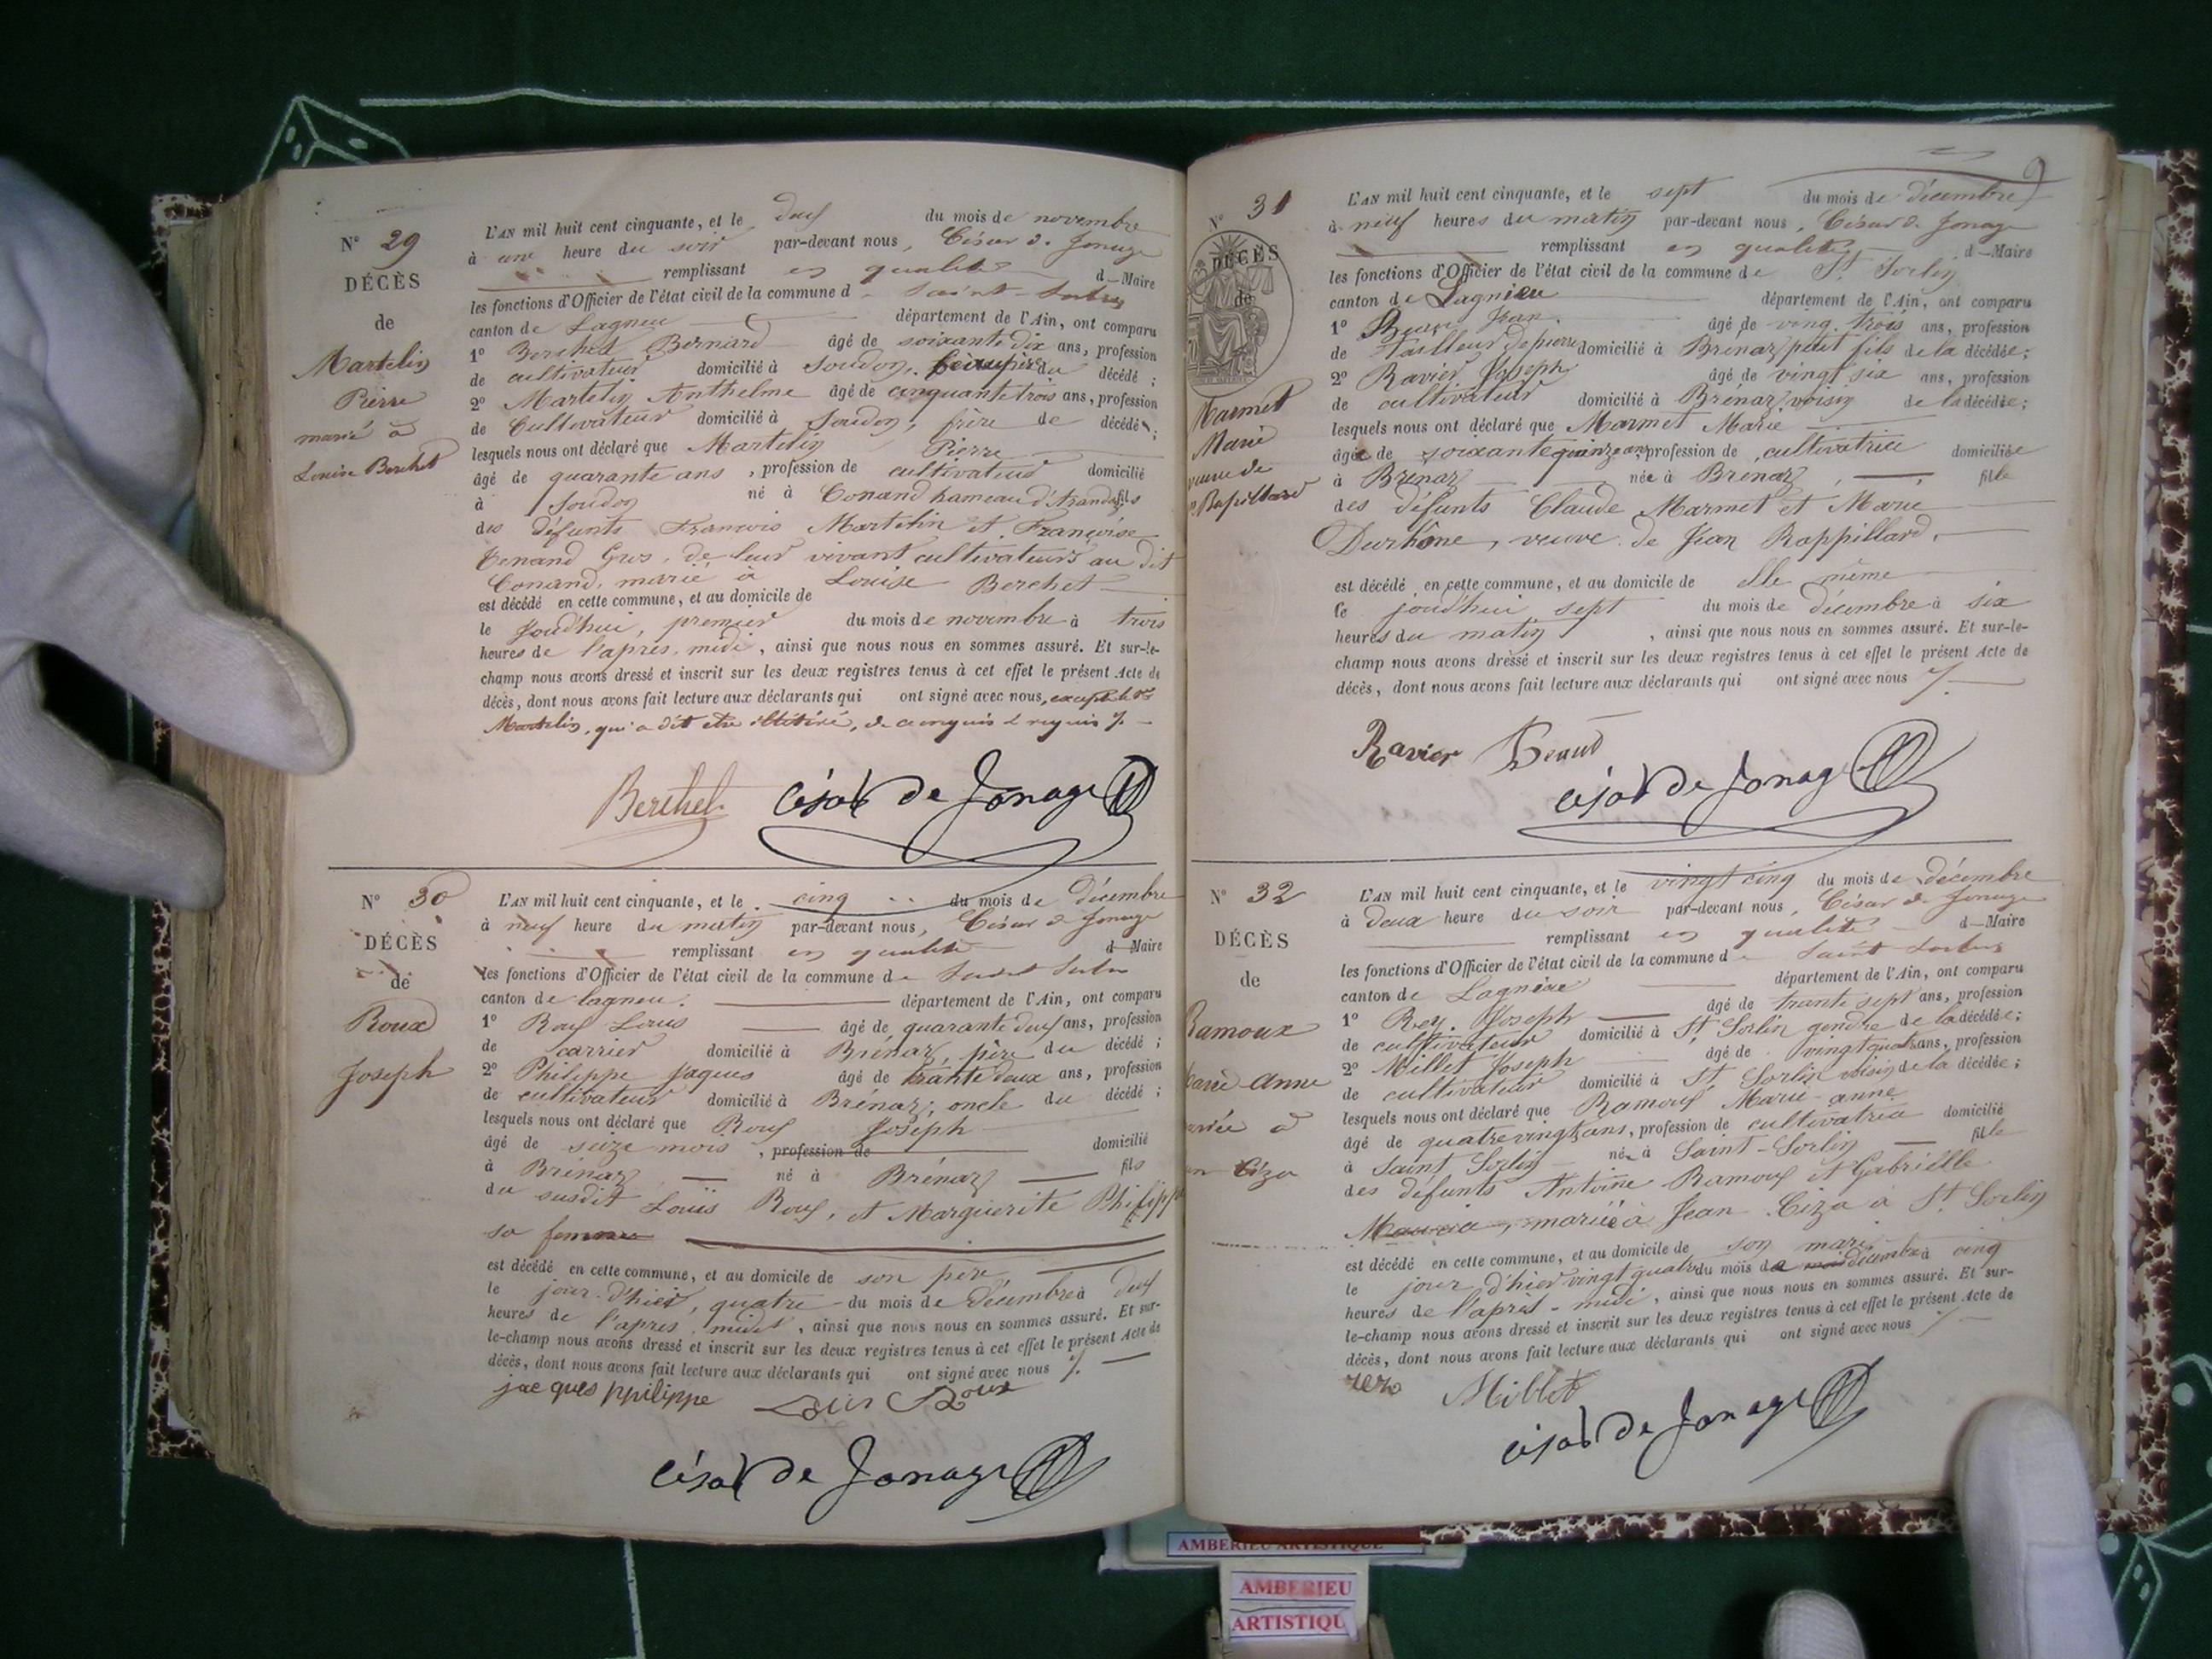 N° 29
DÉCÈS
de
Martelin
Pierre
marié à
Louise Berchet
L'AN mil huit cent cinquante, et le deux du mois de novembre
à une heure du soir par-devant nous, César d. Jonage
remplissant en qualité d Maire
les fonctions d'Officier de l'état civil de la commune d Saint-Sorlin
canton de Lagneu département de l'Ain, ont comparu
1° Berchet Bernard âgé de soixante dix ans, profession
de cultivateur domicilié à Soudon, du décédé ;
2° Martelin Anthelme âgé de cinquante trois ans, profession
de Cultivateur domicilié à Soudon, frère de décédé ;
lesquels nous ont déclaré que Martelin Pierre
âgé de quarante ans, profession de cultivateur domicilié
à Soudon né à Conand hameau d'arandas fils
des défunts François Martelin et Françoise
Tenand Gros, de leur vivant cultivateurs au dit
Conand, marié à Louise Berchet
est décédé en cette commune, et au domicile de
le Jourd'hui, premier du mois de novembre à trois
heures de l'après midi, ainsi que nous nous en sommes assuré. Et sur-le-
champ nous avons dressé et inscrit sur les deux registres tenus à cet effet le présent Acte de
décès, dont nous avons fait lecture aux déclarants qui ont signé avec nous, excepté le
Martelin, qui a dit être illétéré, de ce enquis & requis
Berchet César de Jonage
N° 30
DÉCÈS
de
Roux
Joseph
L'AN mil huit cent cinquante, et le cinq du mois de décembre
à neuf heure du matin par-devant nous, César d Jonage
remplissant en qualité d Maire
les fonctions d'Officier de l'état civil de la commune d Saint Sorlin
canton de lagneu. département de l'Ain, ont comparu
1° Roux Louis âgé de quarante deux ans, profession
de carrier domicilié à Brénaz, père du décédé ;
2° Philippe Jaques âgé de trante deux ans, profession
de cultivateur domicilié à Brénaz, oncle du décédé ;
lesquels nous ont déclaré que Roux Joseph
âgé de seize mois, profession de domicilié
à Brénaz né à Brénaz fils
du susdit Louis Roux, et Marguerite Philippe
sa femme
est décédé en cette commune, et au domicile de son père
le jour d'hier, quatre du mois de décembre à deux
heures de l'après midi, ainsi que nous nous en sommes assuré. Et sur-
le-champ nous avons dressé et inscrit sur les deux registres tenus à cet effet le présent Acte de
décès, dont nous avons fait lecture aux déclarants qui ont signé avec nous
jacques ppilippe Louis Roux
César de Jonage
9
N° 31
DÉCÈS
de
Marmet
Marie
veuve de
Rapillard
L'AN mil huit cent cinquante, et le sept du mois de décembre
à neuf heures du matin par-devant nous, César d. Jonage
remplissant en qualité d Maire
les fonctions d'Officier de l'état civil de la commune de St Sorlin
canton de Lagnieu département de l'Ain, ont comparu
1° Jean âgé de vingt trois ans, profession
de Tailleur de pierre domicilié à Brénaz petit fils de la décédée ;
2° Ravier Joseph âgé de vingt six ans, profession
de cultivateur domicilié à Brénaz, voisin de la décédée ;
lesquels nous ont déclaré que Marmet Marie
âgée de soixante quinze ans, profession de cultivatrice domiciliée
à Brénaz née à Brénaz, fille
des défunts Claude Marmet et Marie
Durhône, veuve de Jean Rappillard,
est décédé en cette commune, et au domicile de elle même
le jourd'hui sept du mois de décembre à six
heures du matin, ainsi que nous nous en sommes assuré. Et sur-le-
champ nous avons dressé et inscrit sur les deux registres tenus à cet effet le présent Acte de
décès, dont nous avons fait lecture aux déclarants qui ont signé avec nous
Ravier
César de Jonage
N° 32
DÉCÈS
de
Ramoux
Marie Anne
mariée à
Ciza
L'AN mil huit cent cinquante, et le vingt cinq du mois de décembre
à deux heure du soir par-devant nous, César d. Jonage
remplissant en qualité d Maire
les fonctions d'Officier de l'état civil de la commune d Saint Sorlin
canton de Lagnieu département de l'Ain, ont comparu
1° Rey Joseph âgé de trante sept ans, profession
de cultivateur domicilié à St Sorlin gendre de la décédée ;
2° Millet Joseph âgé de vingt quatre ans, profession
de cultivateur domicilié à St Sorlin voisin de la décédée ;
lesquels nous ont déclaré que Ramoux Marie-anne
âgé de quatre vingt ans, profession de cultivatrice domicilié
à Saint Sorlin née à Saint-Sorlin fille
des défunts Antoine Ramoux et Gabrielle
mariée à Jean Ciza à St Sorlin
est décédé en cette commune, et au domicile de son mari
le jour d'hier vingt quatre du mois de décembre à cinq
heures de l'après-midi, ainsi que nous nous en sommes assuré. Et sur-
le-champ nous avons dressé et inscrit sur les deux registres tenus à cet effet le présent Acte de
décès, dont nous avons fait lecture aux déclarants qui ont signé avec nous
Millet
César de Jonage
AMBERIEU ARTISTIQUE
AMBERIEU
ARTISTIQU